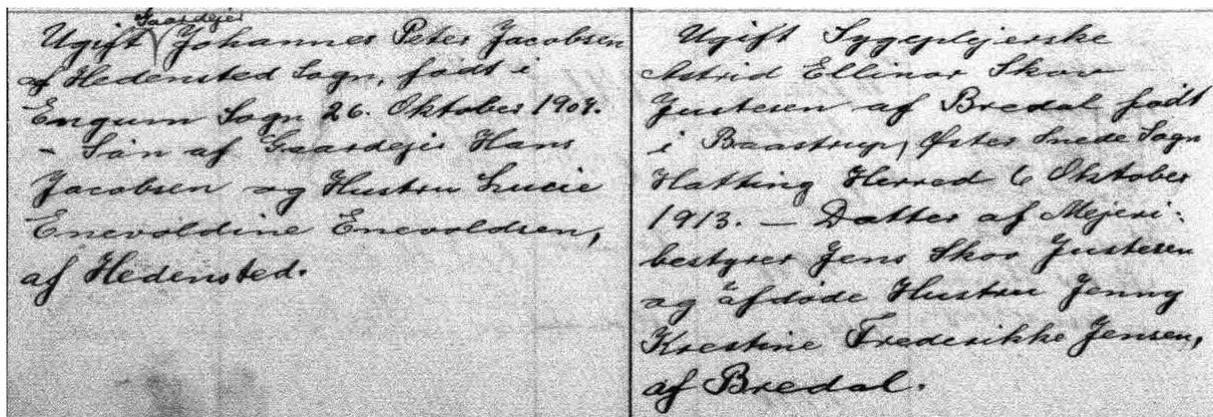 Gaardejer
Ugift Johannes Peter Jacobsen
af Hedensted Sogn, født i
Engum Sogn 26. Oktober 1904.
- Søn af Gaardejer Hans
Jacobsen og Hustru Lucie
Enevoldine Enevoldsen,
af Hedensted.
Ugift Sygeplejerske
Astrid Ellinor Skov
Justesen af Bredal født
i Baastrup, Øster Snede Sogn
Hatting Herred 6 Oktober
1913. — Datter af Mejeri-
bestyrer Jens Skov Justesen
og afdøde Hustru Jenny
Krestine Frederikke Jensen,
af Bredal.